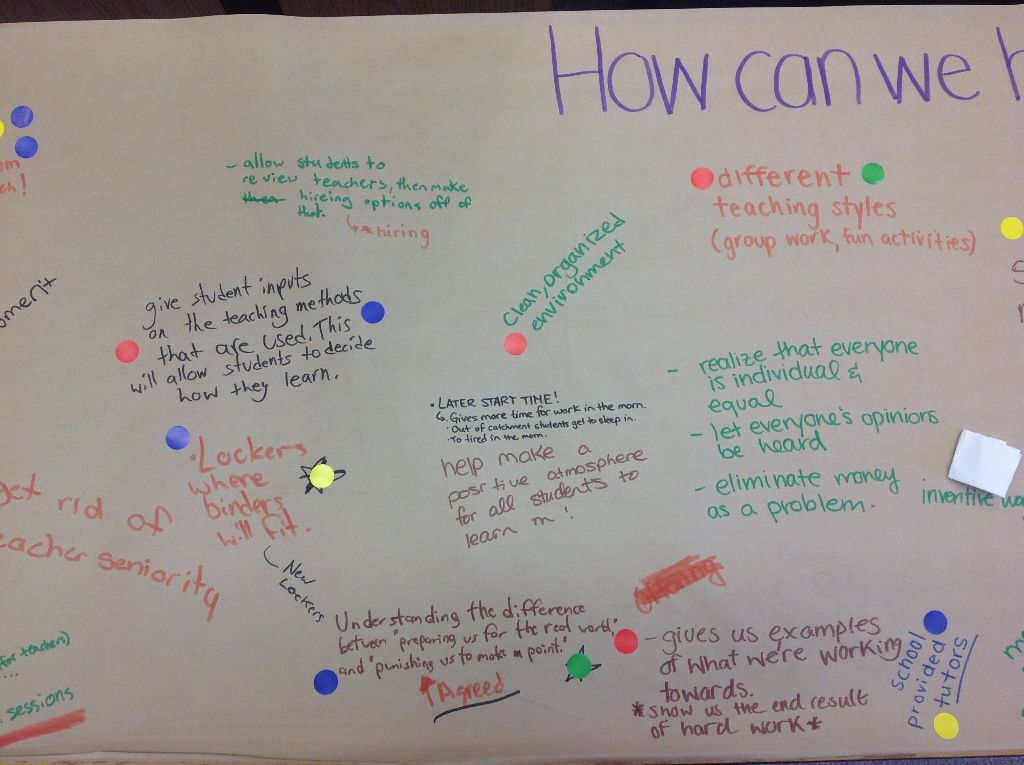 How can we
- allow students to
review teachers, then make
hireing options off of
that.
*hiring
different
teaching styles
(group work, fun activities)
Clean, organized
environment
give student inputs
on the teaching methods
that are used. This
will allow students to decide
how they learn.
- realize that everyone
is individual &
equal
- let everyone's opinions
be heard
- eliminate money
as a problem.
inventive
• LATER START TIME!
Gives more time for work in the morn.
• Out of catchment students get to sleep in.
• To tired in the morn.
help make a
positive atmosphere
for all students to
learn in!
• Lockers
where
binders
will fit.
New
Lockers
get rid of
teacher seniority
Understanding the difference
between "preparing us for the real world,"
and "punishing us to make a point."
Agreed
- gives us examples
of what we're working
towards.
*show us the end result
of hard work*
school
provided
tutors
for teachers)
sessions